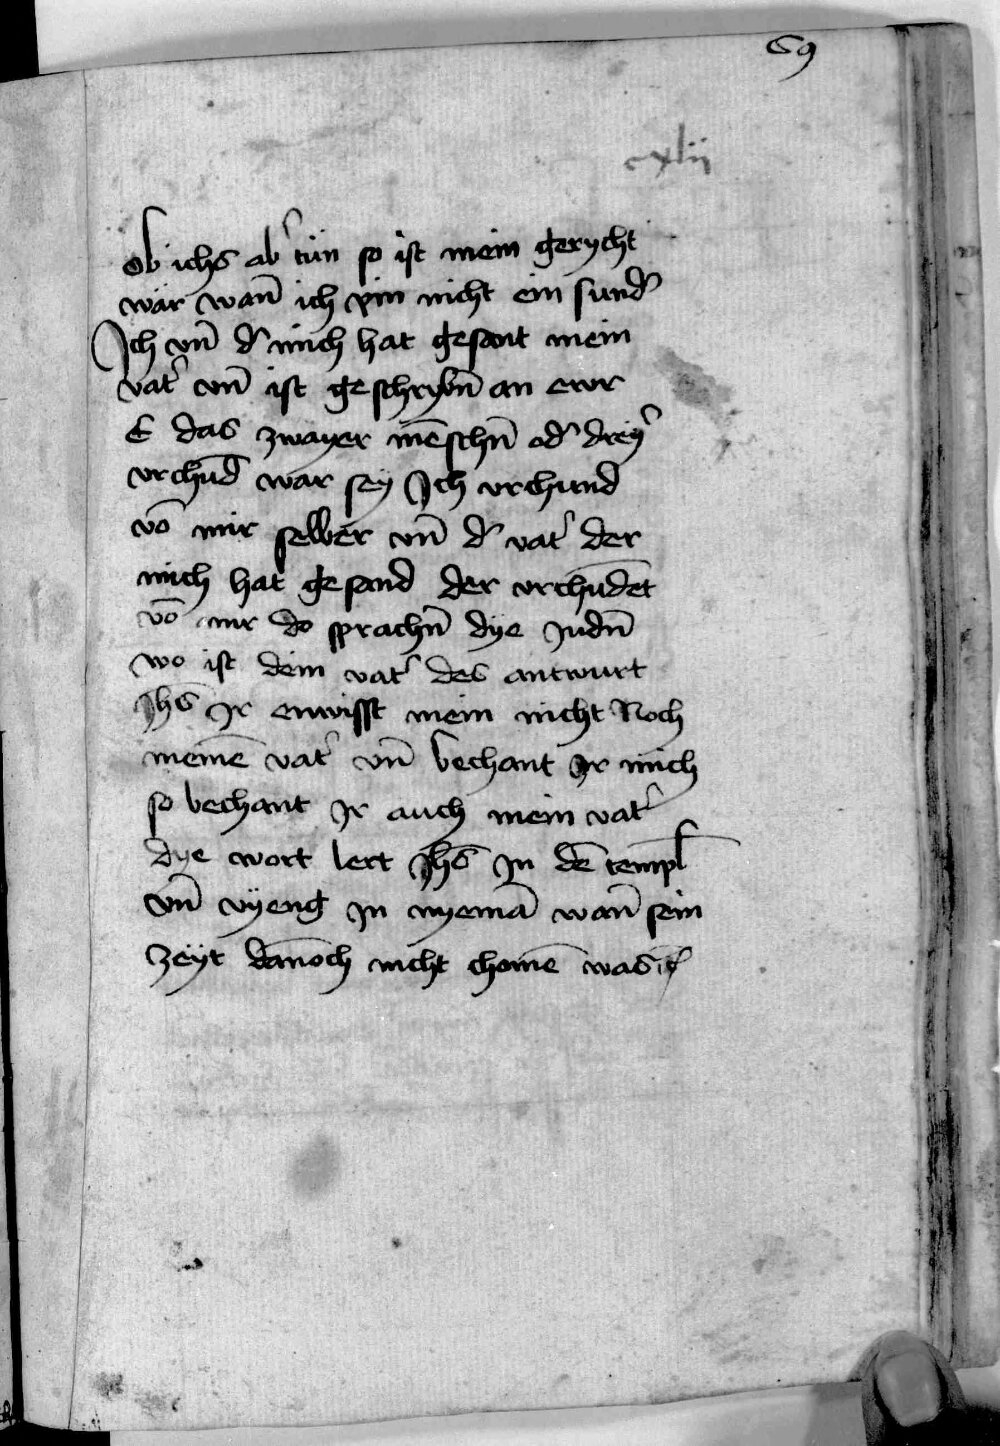 69
cxlii
ob ichs ab͛ tün so ist mein gerycht
wär wan̄ ich pin nicht ein sund͛
Ich vn̄ d͛ mich hat gesant mein
vat͛ vn̄ ist geschrybn̄ an ewr
E das zwayer mēschn̄ od͛ dreÿ͛
vrchūd war seÿ Ich vrchund
vō mir selber vn̄ d͛ vat͛ der
mich hat gesand der vrchūdet
vō mir do sprachn̄ dÿe Judn̄
wo ist dein vat͛ des antwurt
Jhs̄ Ir enwisst mein nicht Noch
meinē vat͛ vn̄ bechant Ir mich
so bechant Ir auch mein vat͛
dye wort lert Jhs̄ In dē templ
vn̄ vÿeng In nyemā wan̄ sein
zeÿt dānoch nicht chomē was